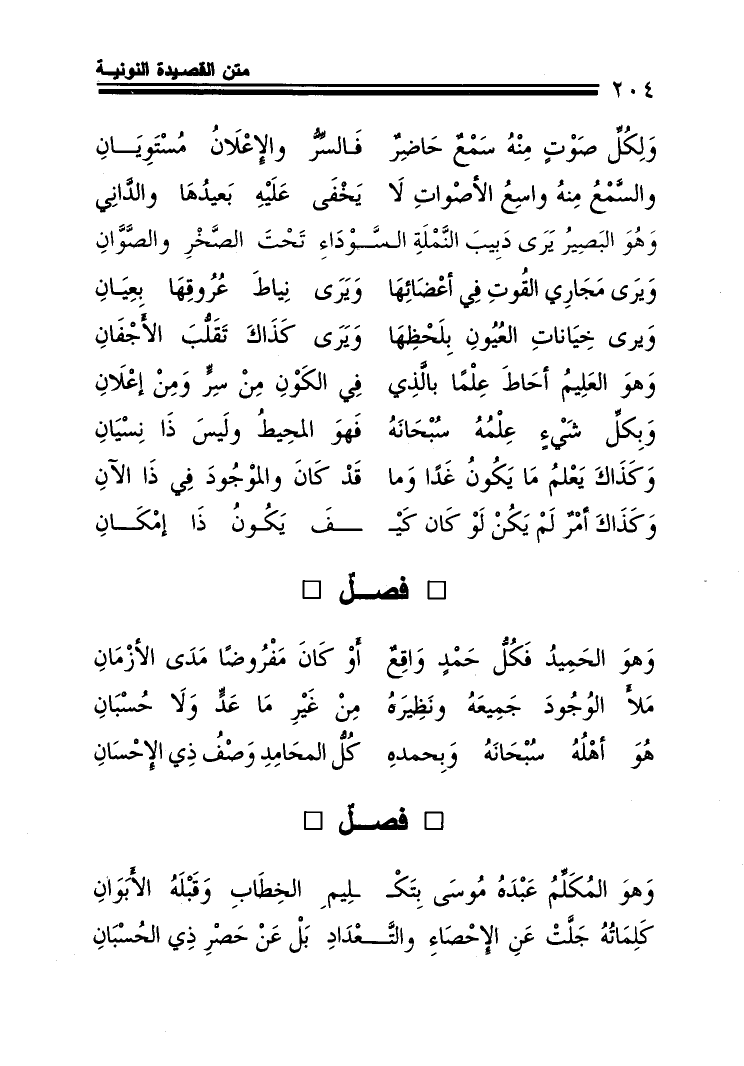 متن القصيدة النونية
٢٠٤
وَلِكُلِّ صَوْتٍ مِنْهُ سَمْعٌ حَاضِرٌ فَالسرُّ والإِعْلَانُ مُسْتَوِيَــانِ
والسَّمْعُ مِنهُ واسِعُ الأصْواتِ لَا يَخْفَى عَلَيْهِ بَعيدُهَا والدَّانِي
وَهُوَ البَصيرُ يَرَى دَبِيبَ النَّمْلَةِ السَّوْدَاءِ تَحْتَ الصَّخْرِ والصَّوَّانِ
وَيَرَى مَجَارِي القُوتِ فِي أعْضَائِهَا وَيَرَى نِيَاطَ عُرُوقِهَا بِعِيَانِ
وَيرى خِيَاناتِ العُيُونِ بِلَحْظِهَا وَيَرَى كَذَاكَ تَقَلُّبَ الأَجْفَانِ
وَهوَ العَلِيمُ أحَاطَ عِلْمًا بالَّذِي فِي الكَوْنِ مِنْ سِرٍّ وَمِنْ إعْلَانِ
وَبِكلِّ شَيْءٍ عِلْمُهُ سُبْحَانَهُ فَهوَ المحِيطُ ولَيسَ ذَا نِسْيَانِ
وَكَذَاكَ يَعْلَمُ مَا يَكُونُ غَدًا وَما قَدْ كَانَ والمَوْجُودَ فِي ذَا الآنِ
وَكَذَاكَ أمْرٌ لَمْ يَكُنْ لَوْ كَان كَيْـ ـفَ يَكُونُ ذَا إمْكَــانِ
□ فصــلٌ □
وَهوَ الحَمِيدُ فَكُلُّ حَمْدٍ وَاقِعٌ أَوْ كَانَ مَفْرُوضًا مَدَى الأزْمَانِ
مَلأَ الوُجُودَ جَمِيعَهُ ونَظِيرَهُ مِنْ غَيْرِ مَا عَدٍّ وَلَا حُسْبَانِ
هُوَ أهْلُهُ سُبْحَانَهُ وَبِحمدهِ كُلُّ المحَامِدِ وَصْفُ ذِي الإحْسَانِ
□ فصــلٌ □
وَهوَ المُكَلِّمُ عَبْدَهُ مُوسَى بِتَكْـ ـلِيمِ الخِطَابِ وَقَبْلَهُ الأَبَوَانِ
كَلِمَاتُهُ جَلَّتْ عَنِ الإحْصَاءِ والتَّـعْدَادِ بَلْ عَنْ حَصْرِ ذِي الحُسْبَانِ